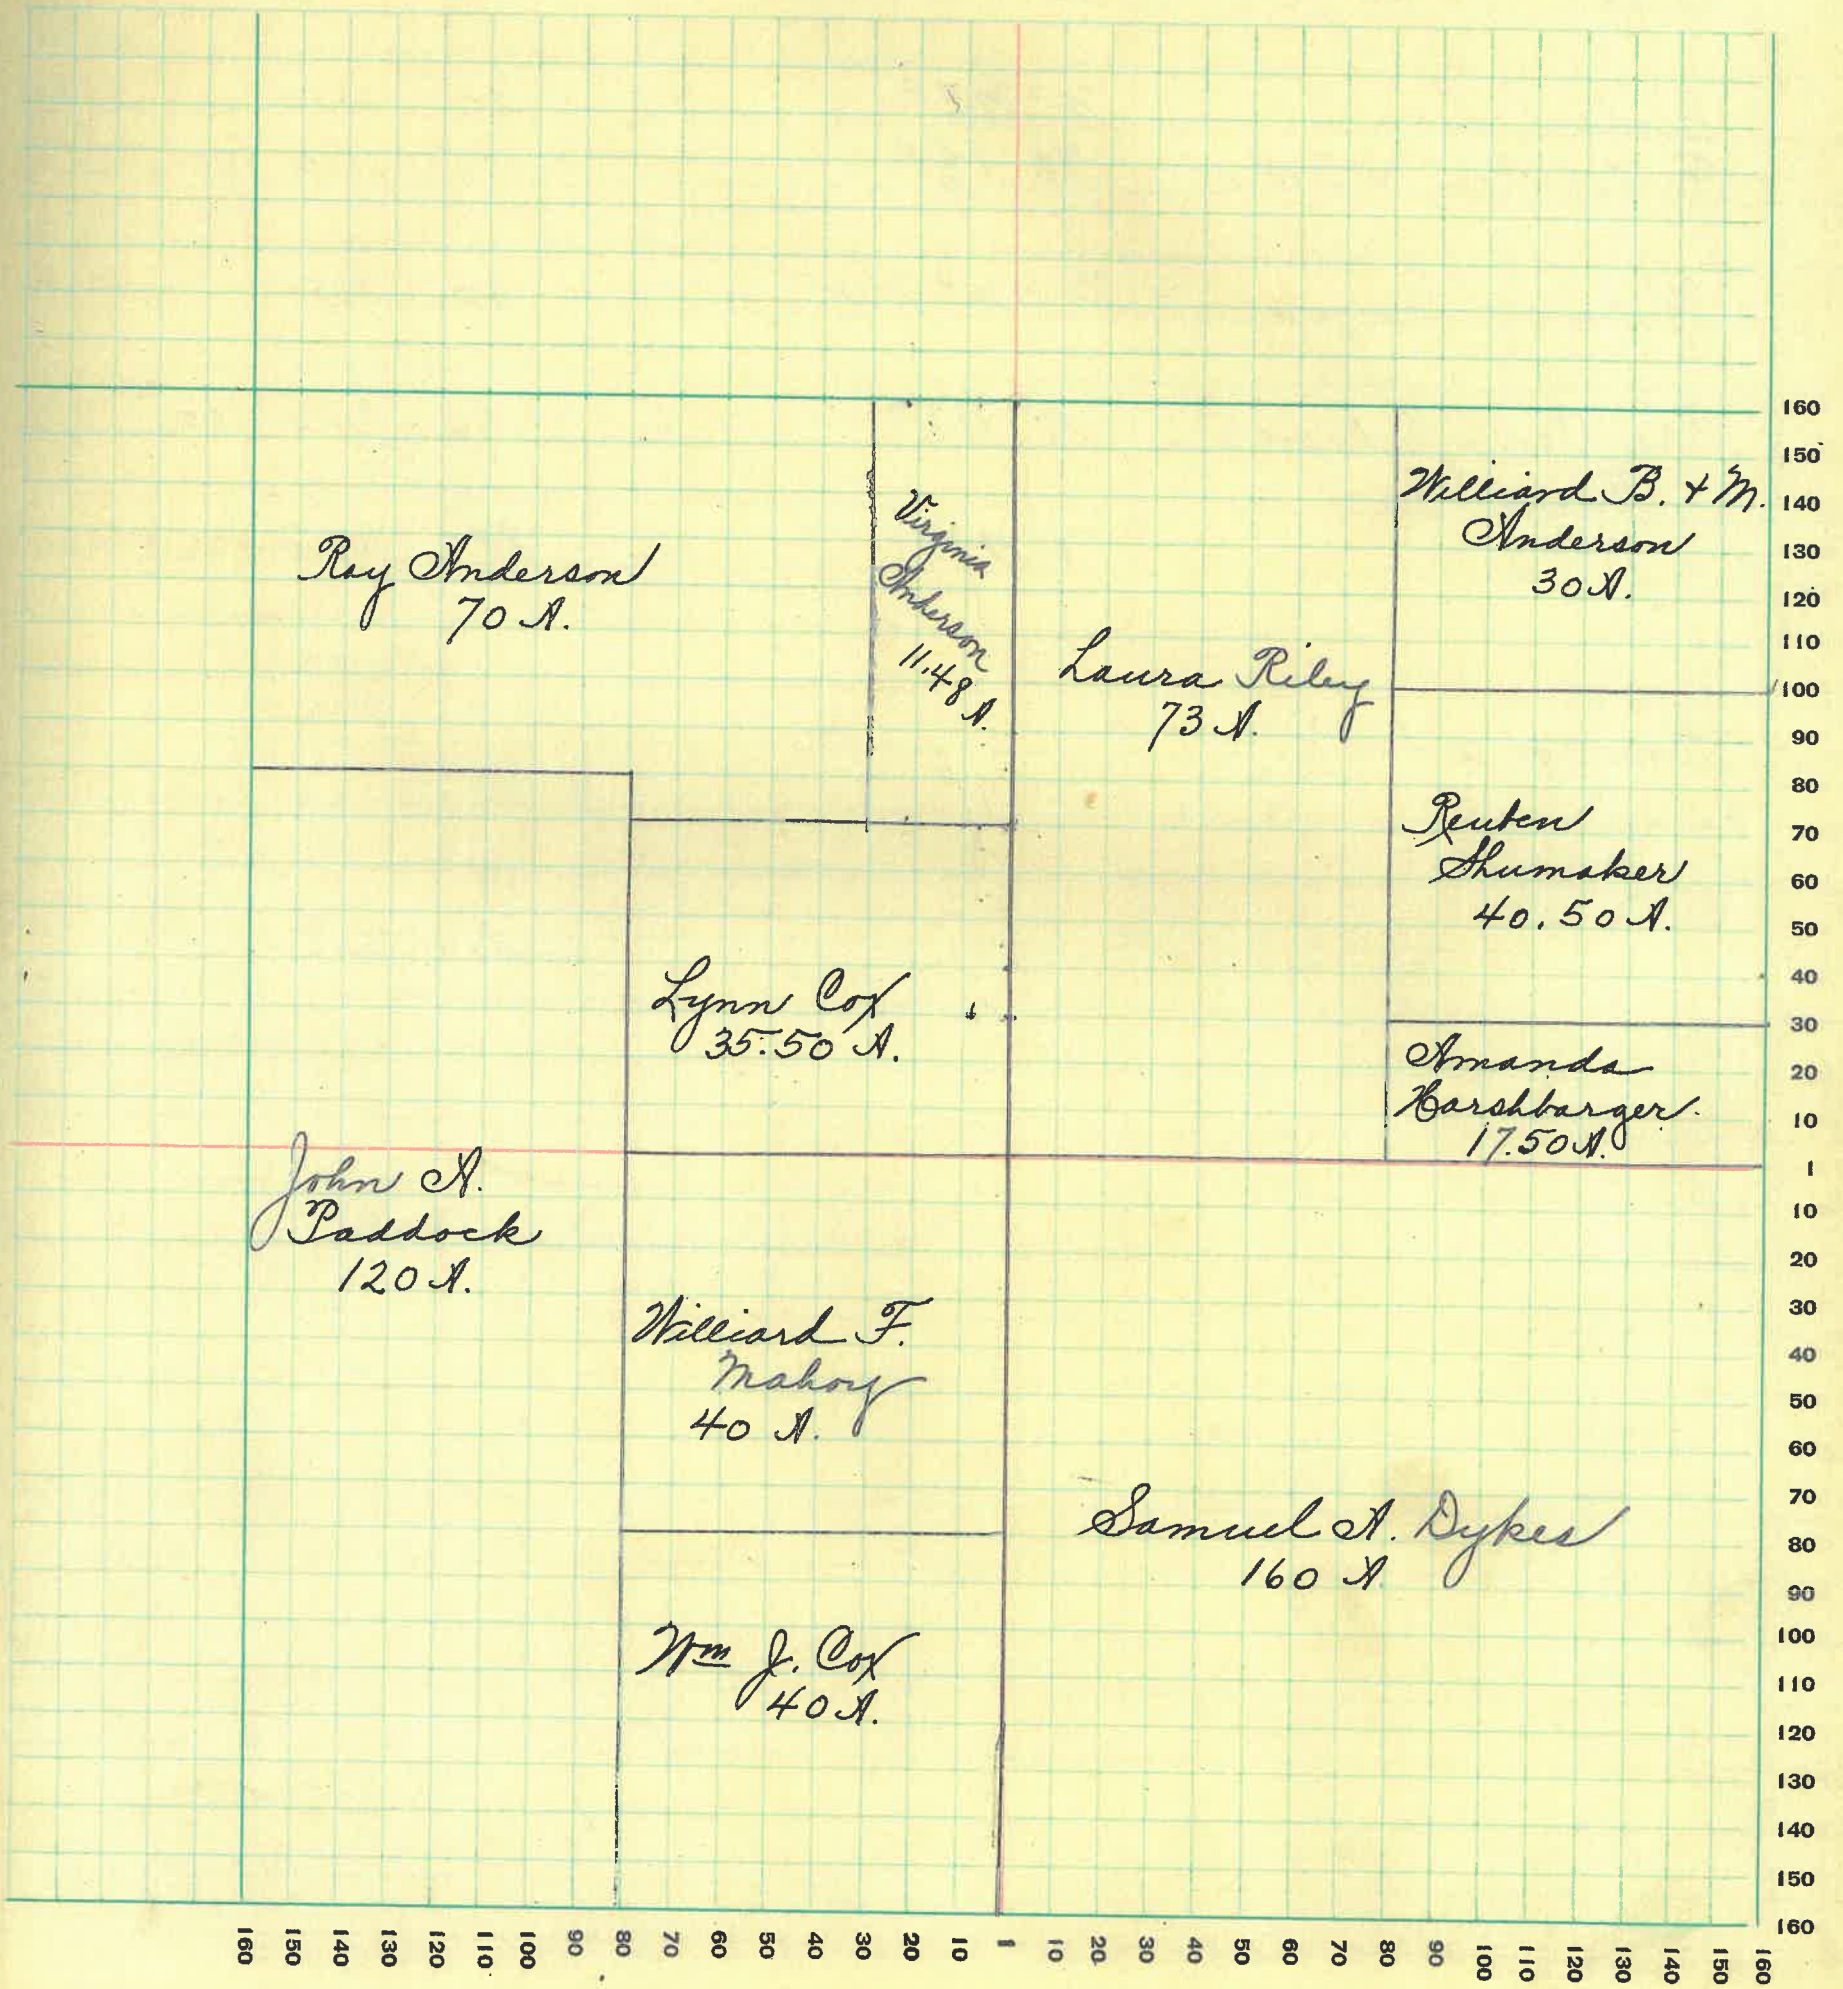 Ray Anderson
70 A.
Virginia
Anderson
11.48 A.
Laura Riley
73 A.
Williard B. + M.
Anderson
30 A.
Reuben
Shumaker
40.50 A.
Amanda
Harshbarger.
17.50 A.
Lynn Cox
35.50 A.
John A.
Paddock
120 A.
Williard F.
Mahoy
40 A.
Samuel A. Dykes
160 A
Wm J. Cox
40 A.
160
150
140
130
120
110
100
90
80
70
60
50
40
30
20
10
1
10
20
30
40
50
60
70
80
90
100
110
120
130
140
150
160
160 150 140 130 120 110 100 90 80 70 60 50 40 30 20 10 1 10 20 30 40 50 60 70 80 90 100 110 120 130 140 150 160